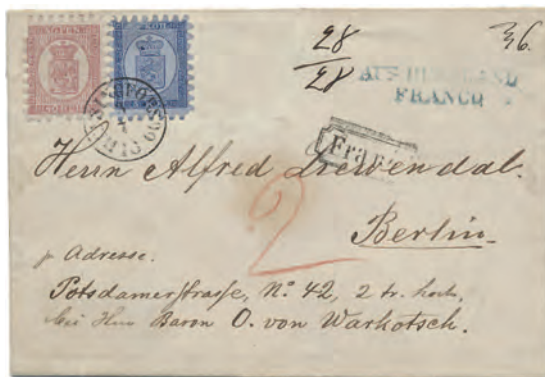 40 PEN.
28
28
36.
AUS RUSSLAND
FRANCO
Franco
Herrn Alfred
2
Berlin.
p Adresse.
Potsdamerstraſse, Nº 42, 2 tr. hoch,
bei Herrn Baron O. von Warkotsch.